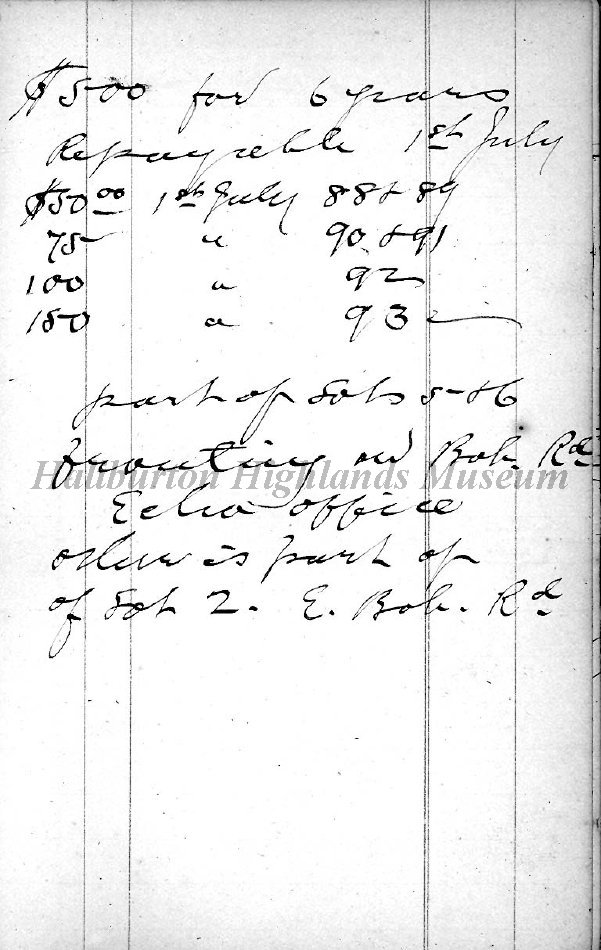 $500 for 6 years
Repayable 1st July
$50.00 1st July 88 & 89
75 " 90 & 91
100 " 92
150 " 93
part of Lots 5 & 6
fronting on Bob. Rd
Haliburton Highlands Museum
Echo office
other is part of
of Lot 2. E. Bob. Rd